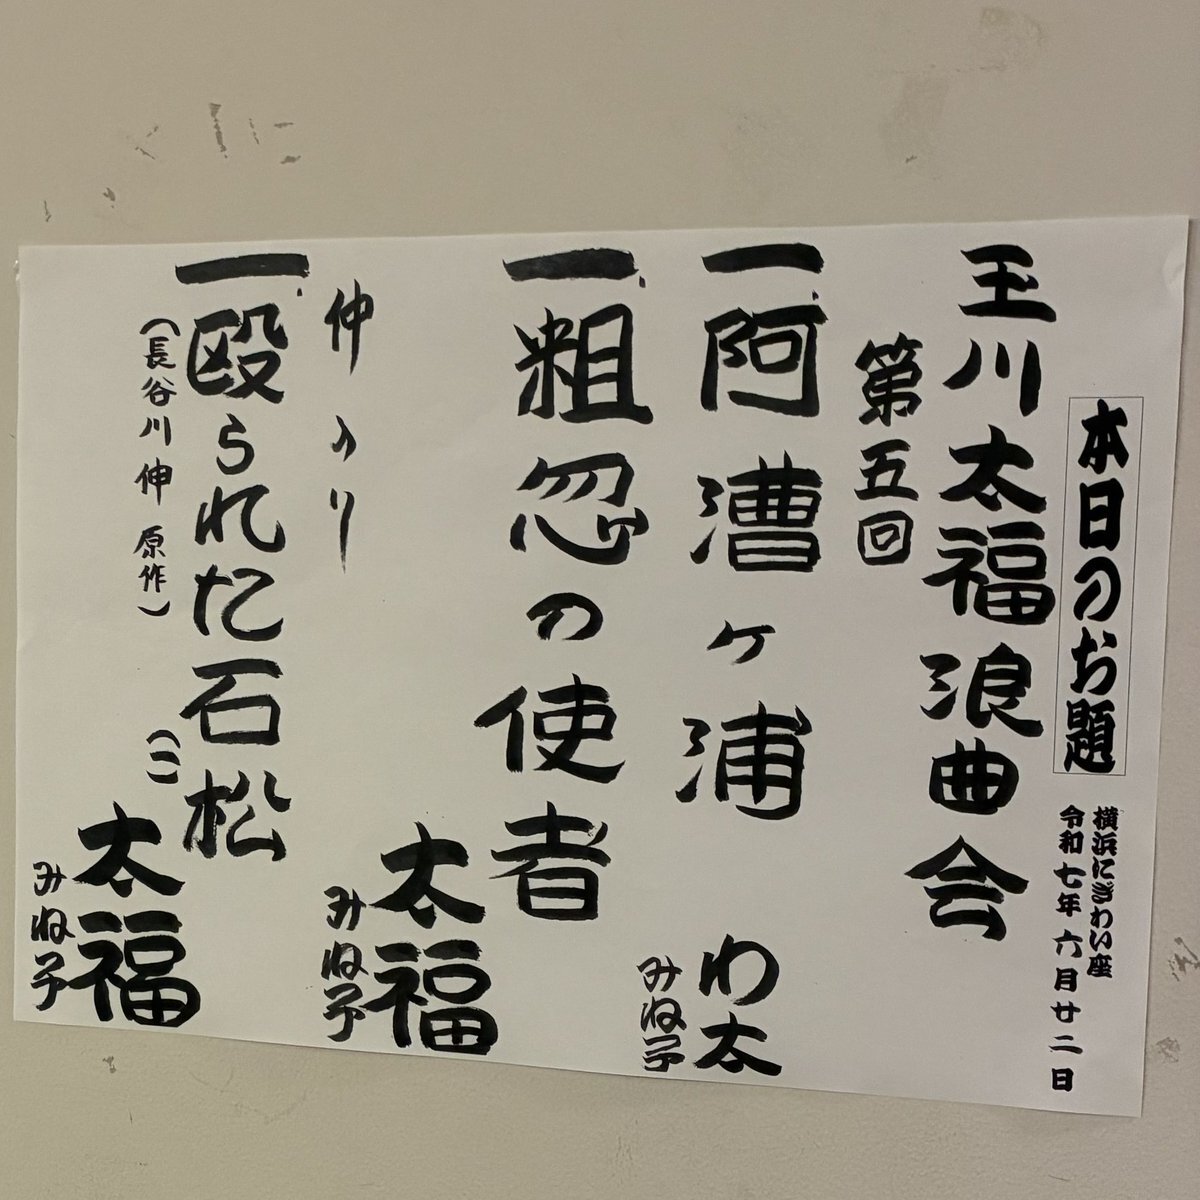 本日のお題
横浜にぎわい座
令和七年六月廿二日
玉川太福浪曲会
第五回
一、阿漕ヶ浦
わ太
みね子
一、粗忽の使者
太福
みね子
仲入り
一、殴られた石松
(長谷川伸 原作)
(二)
太福
みね子